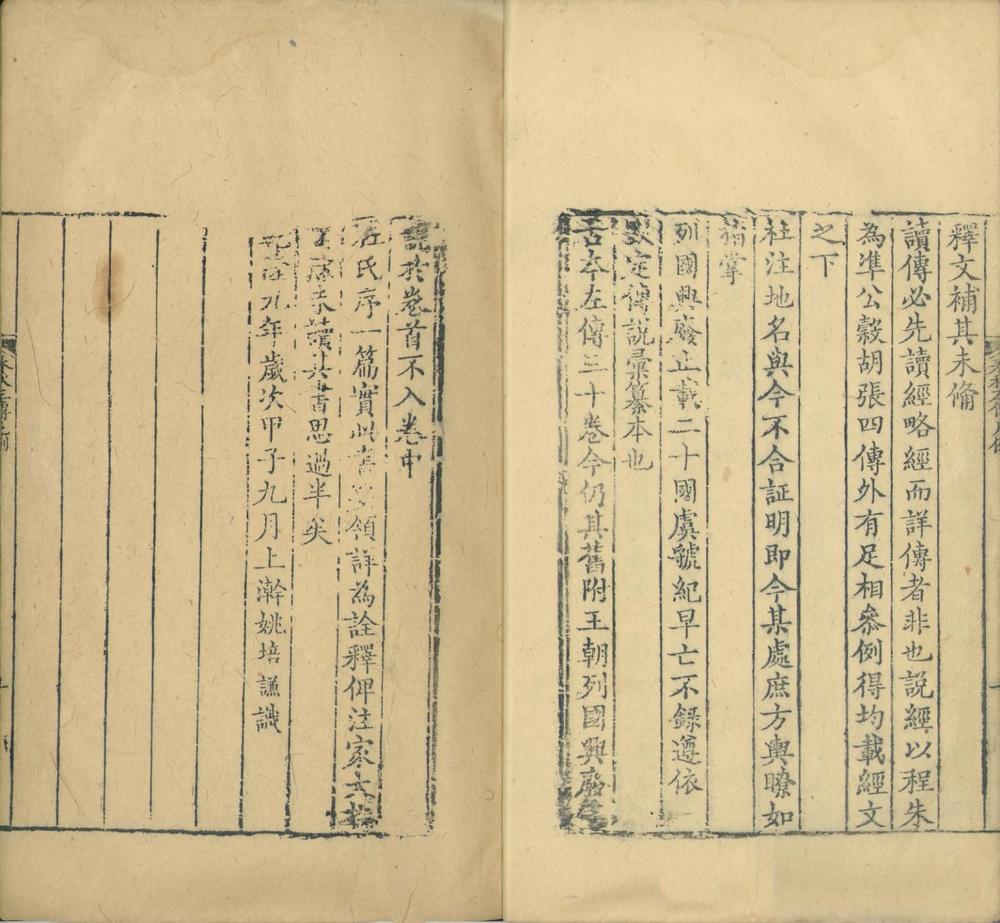 釋文補其未僃
讀傳必先讀經略經而詳傳者非也説經以程朱
為準公穀胡張四傳外有足相叅例得均載經文
之下
杜注地名與今不合証明即今某處庶方輿瞭如
指掌
列國興廢止載二十國虞虢紀早亡不録遵依
欽定傳説彙纂本也
古本左傳三十卷今仍其舊附王朝列國興廢
説於卷首不入卷中
杜氏序一篇實此書領詳為詮釋俾注家大
讀其書思過半矣
九年歲次甲子九月上澣姚培謙識